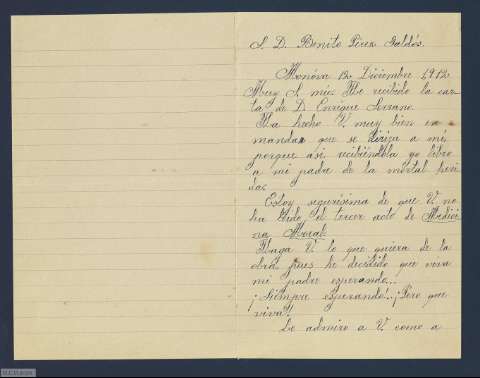 S. D. Benito Pérez Galdós.
Monóva 12 Diciembre 1912
Muy S. mio: He recibido la car-
ta de D. Enrique Serrano.
Ha hecho V. muy bien en
mandar que se dirija a mí,
porque asi recibiéndola yo libro
a mi padre de la mortal heri-
da.
Estoy segurísima de que V. no
ha leido el tercer acto de Medici-
na Moral.
Haga V. lo que quiera de la
obra, pues he decidido que viva
mi padre esperando...
¡Siempre esperando!.. ¡Pero que
viva!!
Le admiro a V. como a